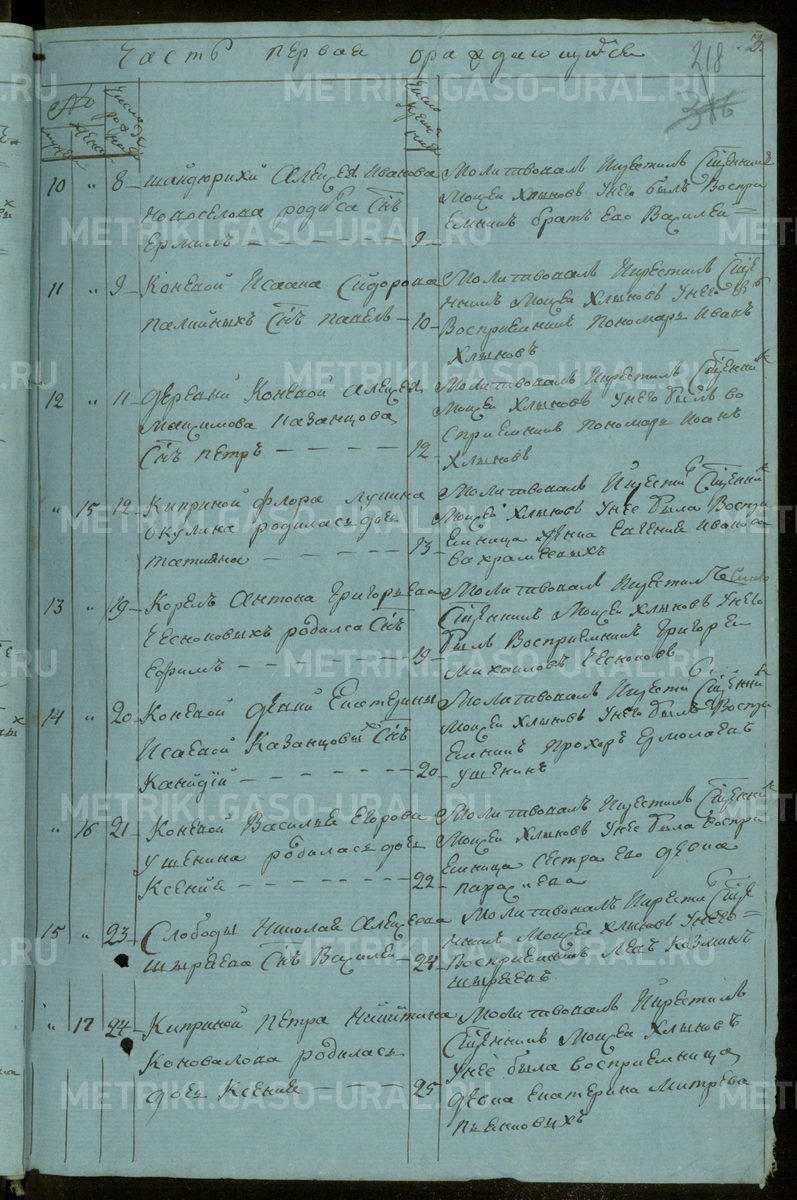 2.
Часть первая о раждающихся
218
316
№
Число рождения
Число крещения
10 " 8 Шандюрихи Алексея Иванова
Новоселова родился Снъ
Ермилъ 9
Молитвовалъ и крестилъ Сщенникъ
Мокей Хлыновъ унего былъ Воспри
емникъ братъ Его Василей
11 " 9 Коневой Исаака Сидорова
Палкиныхъ Снъ Павелъ 10
Молитвовалъ и крестилъ Сще
нникъ Мокей Хлыновъ унего
Восприемникъ Пономарь Иванъ
Хлыновъ
12 " 11 деревни Коневой Алексея
Максимова Казанцова
Снъ Петръ 12
Молитвовалъ и крестилъ Сщенник
Мокей Хлыновъ унего былъ во
сприемникъ Пономарь Иоанъ
Хлыновъ
" 15 12 Киприной Флора Лукина
родилась дочь
Татияна 13
Молитвовалъ и крестил Сщенник
Мокей Хлыновъ унее была Воспри
емница Евгения Иванова
Вахрамеевыхъ
13 " 19 Корелъ Антона Григорьева
Чесноковыхъ родился Снъ
Ефимъ 19
Молитвовалъ и крестилъ
Сщенникъ Мокей Хлыновъ унего
былъ Восприемникъ Григорей
Михайловъ Чесноковъ
14 " 20 Коневой девки Екатерины
Исаевой Казанцовых Снъ
20
Молитвовалъ и крестил Сщенник
Мокей Хлыновъ унего былъ Воспри
емникъ Прохоръ Ермолаевъ
Ушенинъ
" 16 21 Коневой Василья Егорова
Ушенина родилась дочь
Ксения 22
Молитвовалъ и крестилъ Сщенник
Мокей Хлыновъ унее была воспри
емница Сестра Его девка
15 " 23 Слободы Николая Алексеева
Шыряева Снъ Василей 24
Молитвовалъ и крестил Сще
нникъ Мокей Хлыновъ унего
Восприемникъ Левъ Козминъ
Шыряевъ
" 17 24 Киприной Петра Никитина
Коновалова родилась
дочь Ксения 25
Молитвовалъ и крестилъ
Сщенникъ Мокей Хлыновъ
унее была восприемница
девка Екатерина Митрева
METRIKI.GASO-URAL.RU